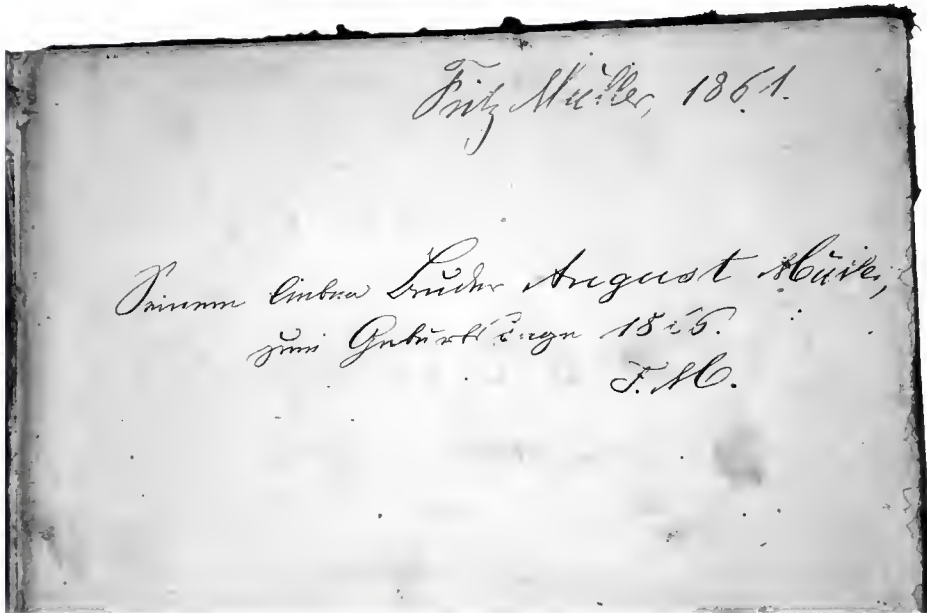 Fritz Müller, 1861.
Seinem lieben Bruder August Müller,
zum Geburtstage
F. M.